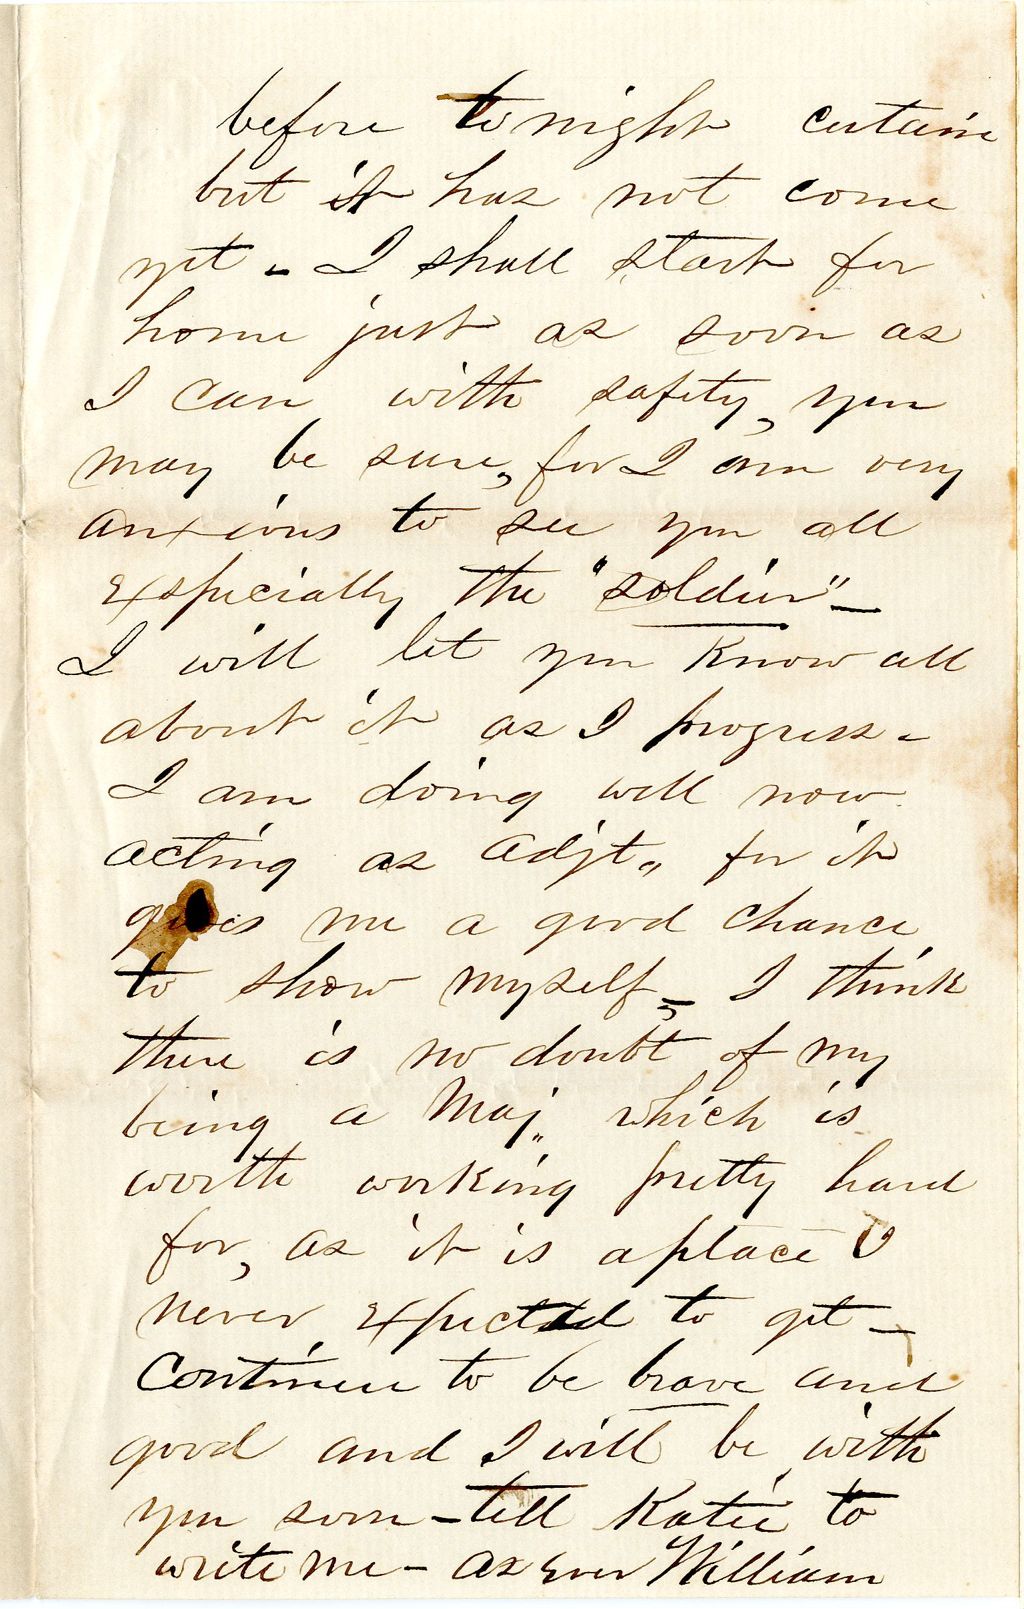 before tonight certain
but it has not come
yet - I shall start for
home just as soon as
I can with safety, you
may be sure, for I am very
anxious to see you all
especially the "soldier" -
I will let you know all
about it as I progress -
I am doing well now
acting as Adjt., for it
gives me a good chance
to show myself, - I think
there is no doubt of my
being a Maj. which is
worth working pretty hard
for, as it is a place I
never expected to get -
Continue to be brave and
good and I will be with
you soon - tell Katie to
write me - as Ever William